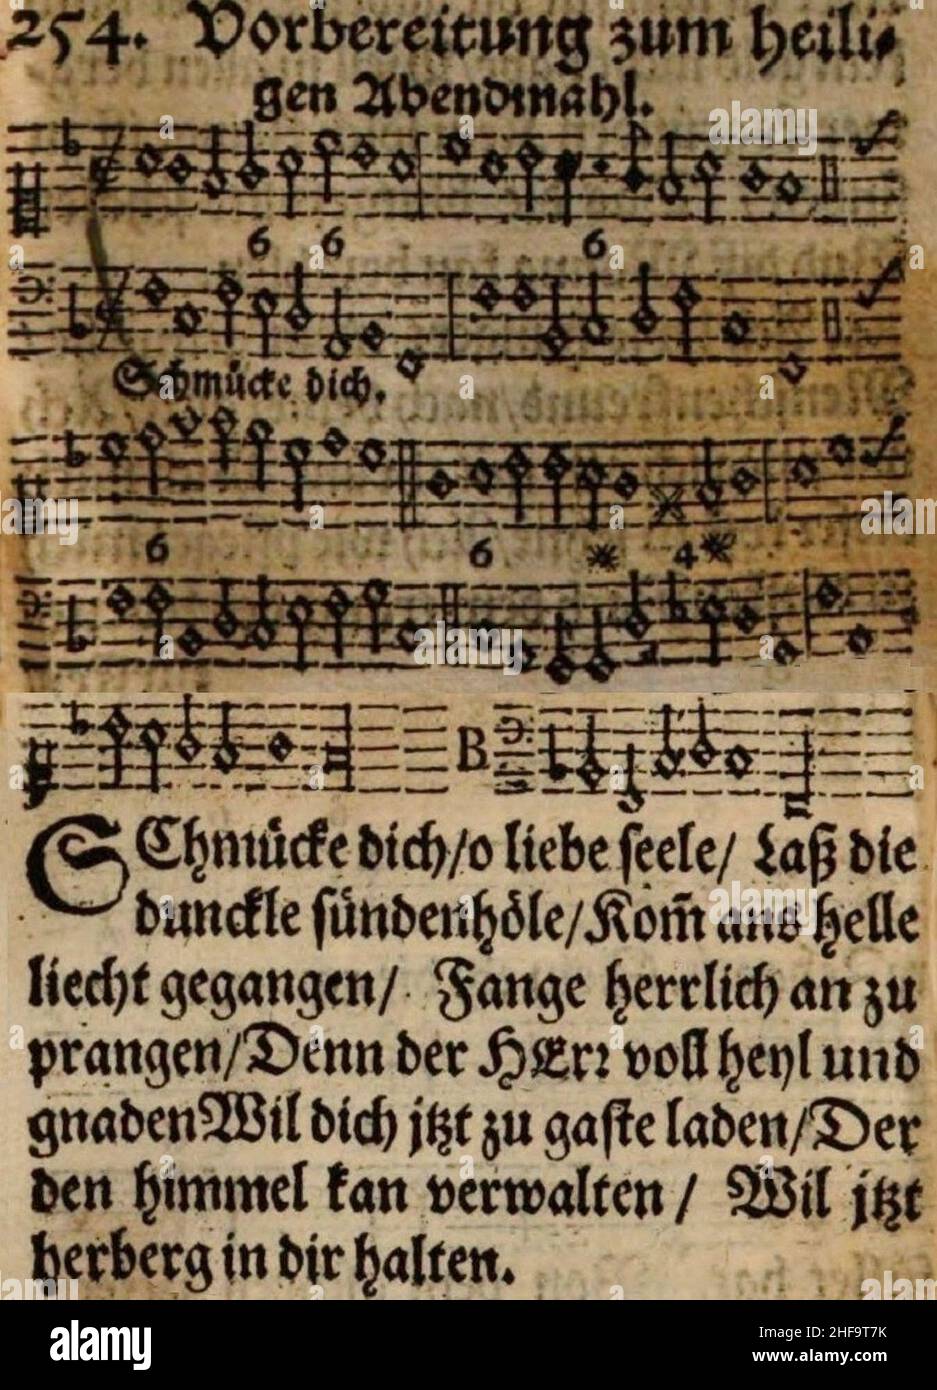 254. Vorbereitung zum heili⸗
gen Abendmahl.
6 6 6
Schmücke dich.
6 6 * 4 *
B
SChmücke dich/o liebe seele/ Laß die
dunckle sündenhöle/Kom̃ ans helle
liecht gegangen/ Fange herrlich an zu
prangen/Denn der HErꝛ voll heyl und
gnaden Wil dich jtzt zu gaste laden/Der
den himmel kan verwalten / Wil jtzt
herberg in dir halten.
alamy
Image ID: 2HF9T7K
www.alamy.com